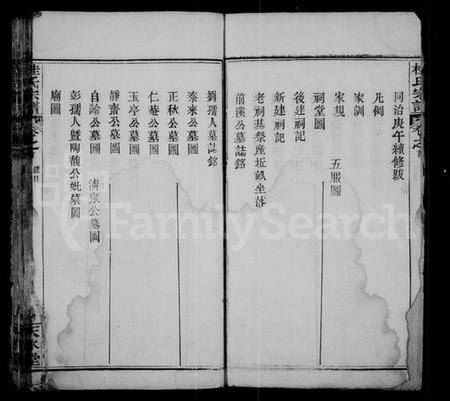 同治庚午續修跋
凡例
家訓
家規 五服圖
祠堂圖
後建祠記
新建祠記
老祠基祭產坵畝坐落
前溪公墓誌銘
劉孺人墓誌銘
泰來公墓圖
正秋公墓圖
仁菴公墓圖
玉亭公墓圖
靜齋公墓圖
自諭公墓圖 清泉公墓圖
彭孺人暨陶酸公妣墓圖
廟圖
FamilySearch